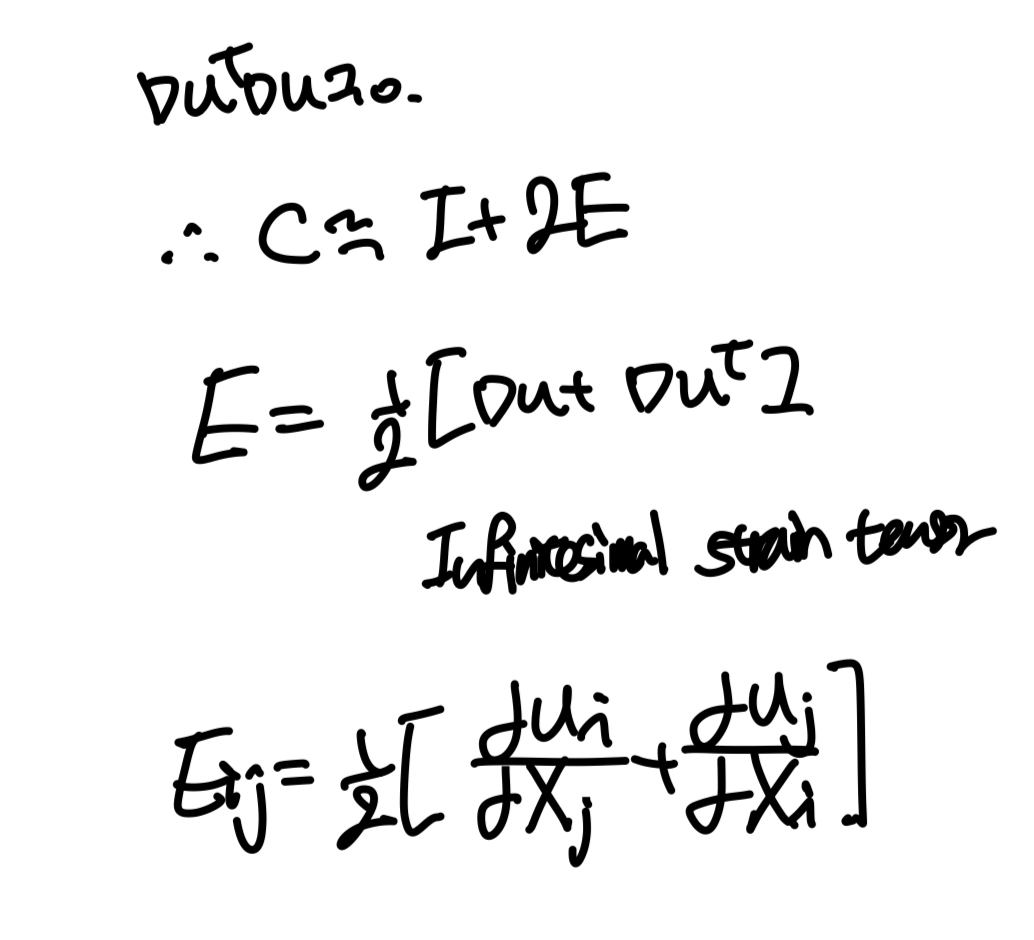 ∇u^T∇u≈0.
∴ C ≈ I + 2E
E = 1/2 [∇u + ∇u^T]
Infinitesimal strain tensor
E_ij = 1/2 [∂u_i/∂X_j + ∂u_j/∂X_i]